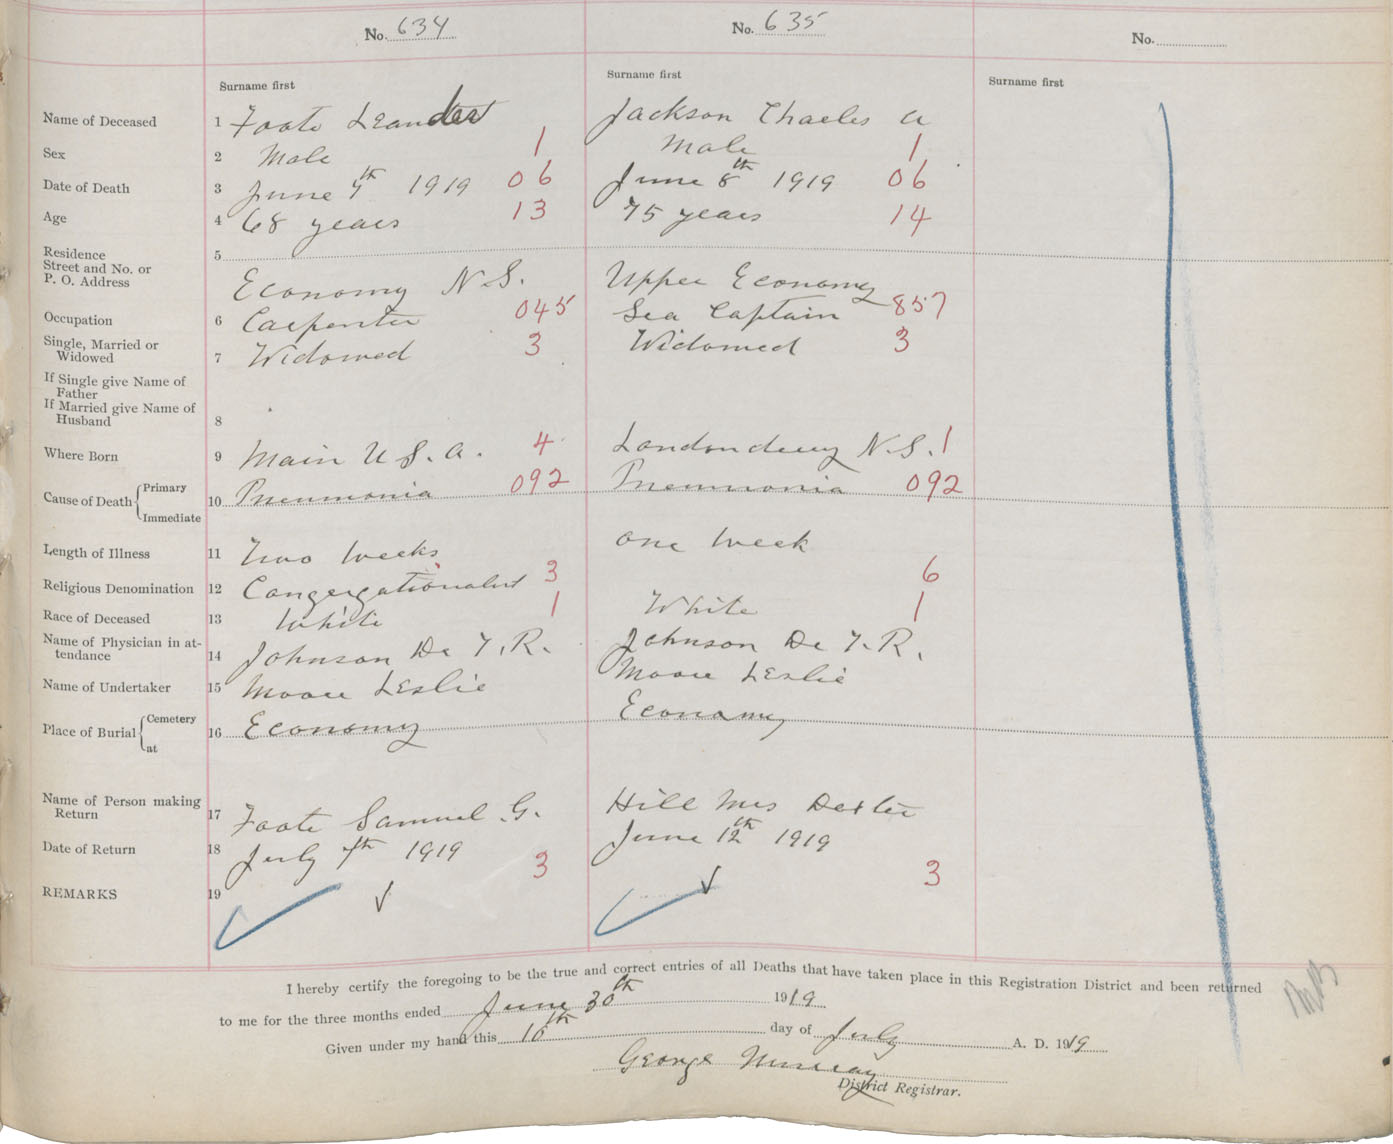 No. 634
No. 635
No.
Surname first
Surname first
Surname first
Name of Deceased 1 Foote Leander Jackson Charles A
Sex 2 Male 1 Male 1
Date of Death 3 June 7th 1919 06 June 8th 1919 06
Age 4 68 years 13 75 years 14
Residence 5
Street and No. or
P. O. Address Economy N.S. Upper Economy
Occupation 6 Carpenter 045 Sea Captain 857
Single, Married or
Widowed 7 Widowed 3 Widowed 3
If Single give Name of
Father
If Married give Name of
Husband 8
Where Born 9 Main U.S.A. 4 Londonderry N.S. 1
Cause of Death Primary
Immediate 10 Pneumonia 092 Pneumonia 092
Length of Illness 11 Two Weeks One Week
Religious Denomination 12 Congergationalist 3 6
Race of Deceased 13 White 1 White 1
Name of Physician in at-
tendance 14 Johnson Dr T. R. Johnson Dr T. R.
Name of Undertaker 15 Moore Leslie Moore Leslie
Place of Burial Cemetery
at 16 Economy Economy
Name of Person making
Return 17 Foote Samuel G. Hill Mrs Dexter
Date of Return 18 July 7th 1919 3 June 12th 1919 3
REMARKS 19
I hereby certify the foregoing to be the true and correct entries of all Deaths that have taken place in this Registration District and been returned
to me for the three months ended June 30th 1919
Given under my hand this 10th day of July A. D. 1919
George Murray
District Registrar.